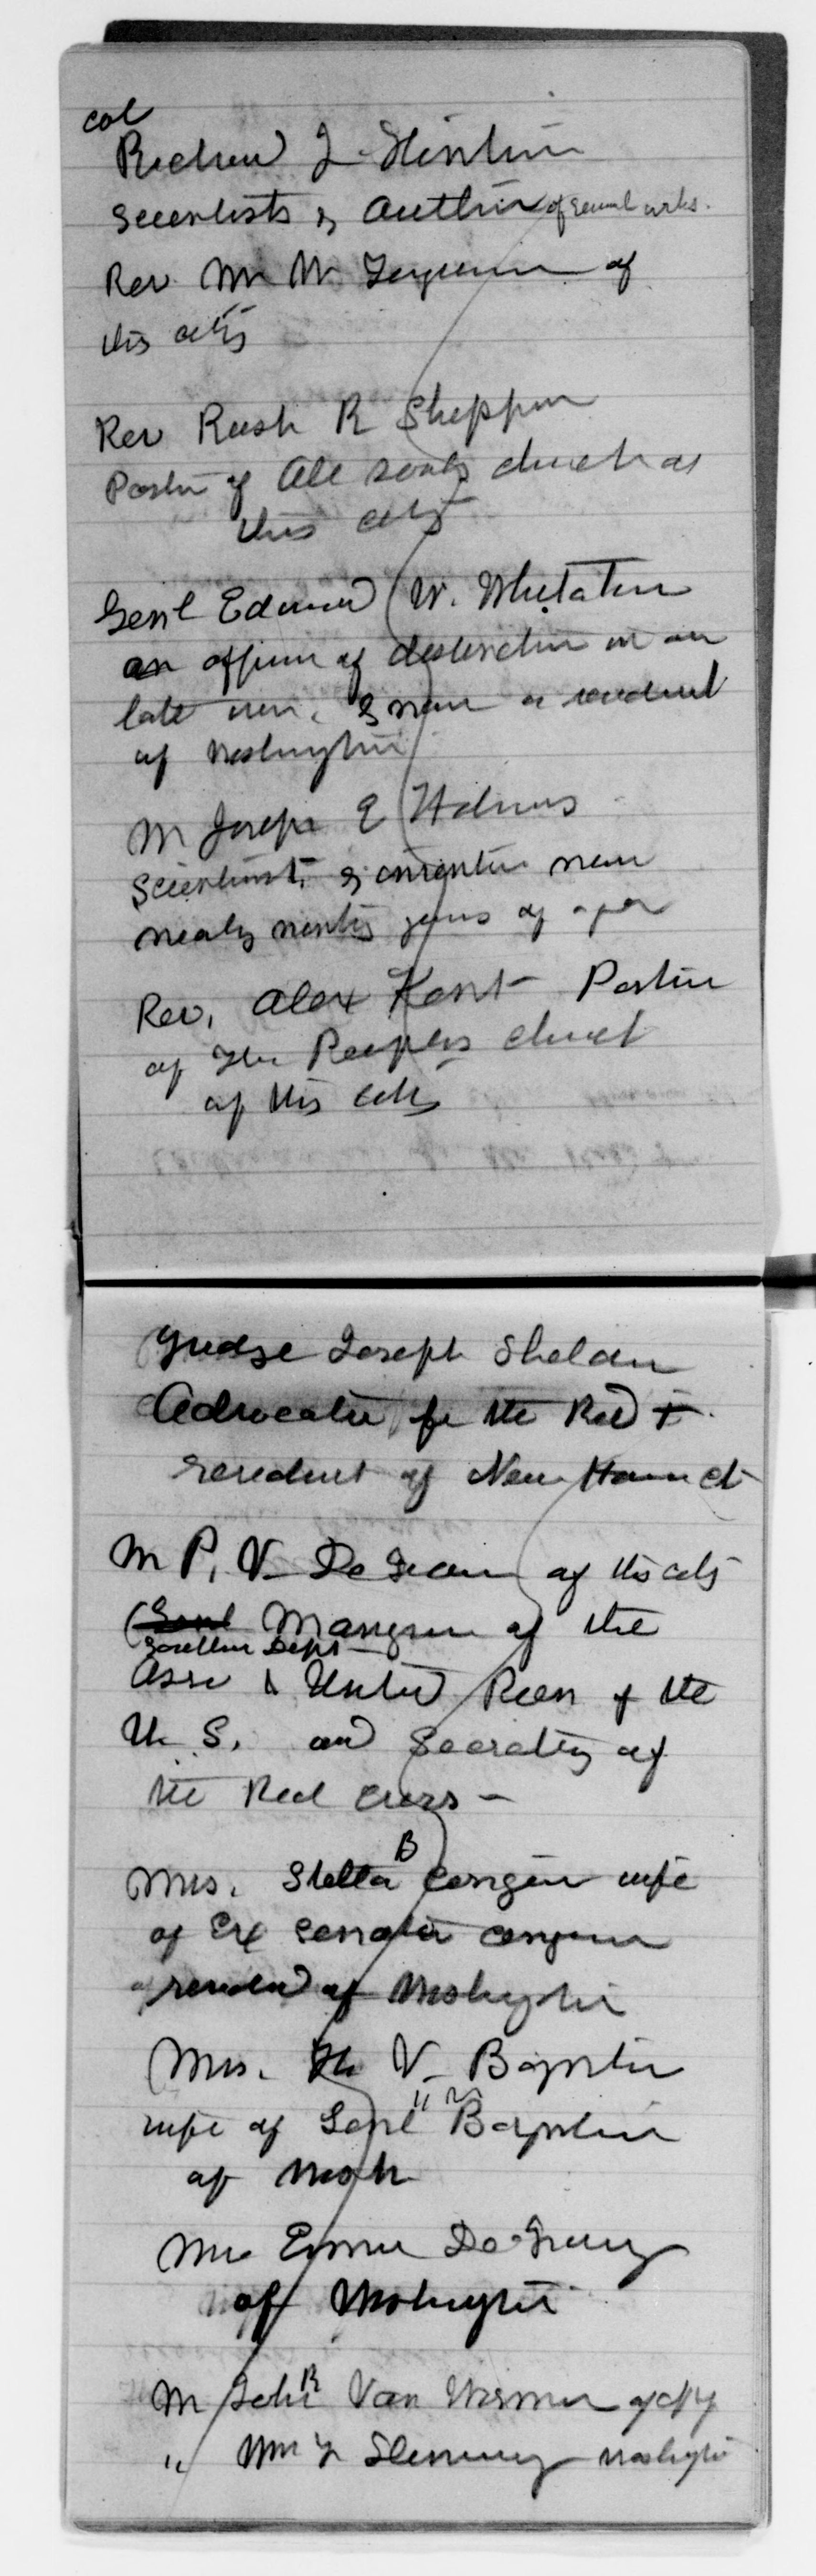 Col
Richard J. Hinton
Scientists & Author of several works.
Rev. Wm W. Ferguson of
this city
Rev Rush R Sheppen
Pastor of All souls church of
this city
Genl Edward W. Whitaker
an officer of distinction in our
late war, & now a resident
of Washington
Mr Joseph E Holmes
Scientist, & inventor now
nearly ninety years of age
Rev. Alex Kent Pastor
of The Peoples church
of this city
Judge Joseph Sheldon
Advocate for the Red +
resident of New Haven Ct
Mr P. V. DeGraw of this city
of the
Southern Dept
Asso & United Press of the
U. S. and Secretary of
the Red Cross -
Mrs. Stella B Conger wife
of Ex Senator Conger
resident of Washington
Mrs. H. V. Boynton
wife of Genl " " Boynton
of Wash
Mrs Emma DeGraw
of Washington
Mr John R Van Wormer of city
" Wm Y Washington